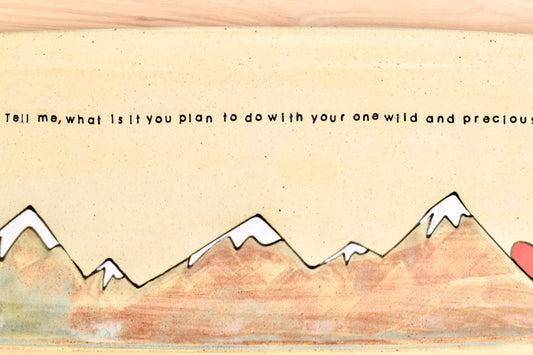 Tell me, what is it you plan to do with your one wild and precious